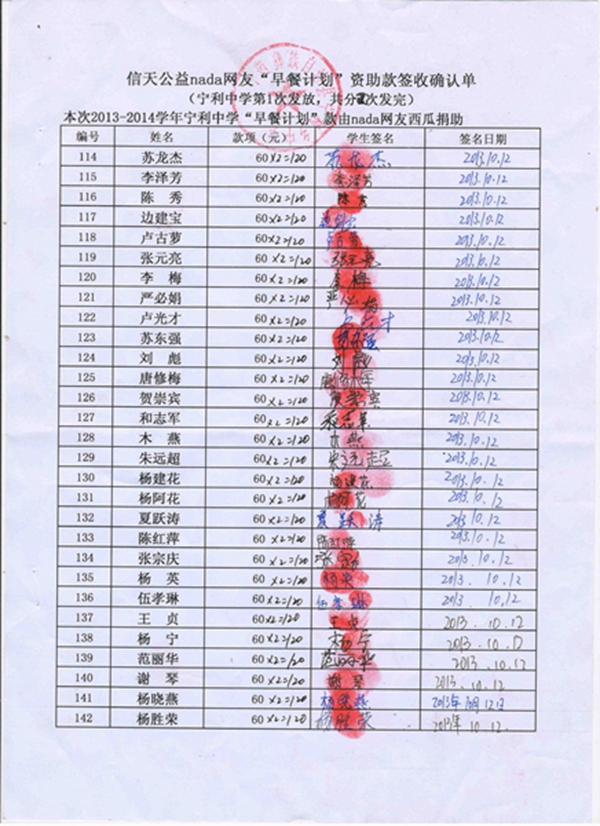 信天公益nada网友“早餐计划”资助款签收确认单
（宁利中学第1次发放，共分2次发完）
本次2013-2014学年宁利中学“早餐计划”款由nada网友西瓜捐助
编号 姓名 款项（元） 学生签名 签名日期
114 苏龙杰 60×2=120 苏龙杰 2013.10.12
115 李泽芳 60×2=120 李泽芳 2013.10.12
116 陈 秀 60×2=120 陈秀 2013.10.12
117 边建宝 60×2=120 2013.10.12
118 卢古萝 60×2=120 2013.10.12
119 张元亮 60×2=120 张元亮 2013.10.12
120 李 梅 60×2=120 李梅 2013.10.12
121 严必娟 60×2=120 2013.10.12
122 卢光才 60×2=120 2013.10.12
123 苏东强 60×2=120 2013.10.12
124 刘 彪 60×2=120 刘彪 2013.10.12
125 唐修梅 60×2=120 2013.10.12
126 贺崇宾 60×2=120 贺崇宾 2013.10.12
127 和志军 60×2=120 和志军 2013.10.12
128 木 燕 60×2=120 木燕 2013.10.12
129 朱远超 60×2=120 朱远超 2013.10.12
130 杨建花 60×2=120 杨建花 2013.10.12
131 杨阿花 60×2=120 2013.10.12
132 夏跃涛 60×2=120 夏跃涛 2013.10.12
133 陈红萍 60×2=120 陈红萍 2013.10.12
134 张宗庆 60×2=120 2013.10.12
135 杨 英 60×2=120 杨英 2013.10.12
136 伍孝琳 60×2=120 伍孝琳 2013.10.12
137 王 贞 60×2=120 王贞 2013.10.12
138 杨 宁 60×2=120 杨宁 2013.10.12
139 范丽华 60×2=120 范丽华 2013.10.12
140 谢 琴 60×2=120 谢琴 2013.10.12
141 杨晓燕 60×2=120 杨晓燕 2013年10月12日
142 杨胜荣 60×2=120 杨胜荣 2013年10.12.